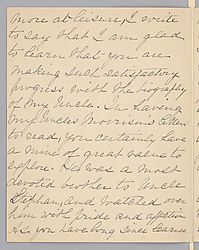 more at leisure, I write
to say that I am glad
to learn that you are
making such satisfactory
progress with the biography
of my Uncle. In having
my Uncle Morrison's letters
to read, you certainly have
a mine of great value to
explore. He was a most
devoted brother to Uncle
Stephen, and watched over
him with pride and affection
as you have long since learned